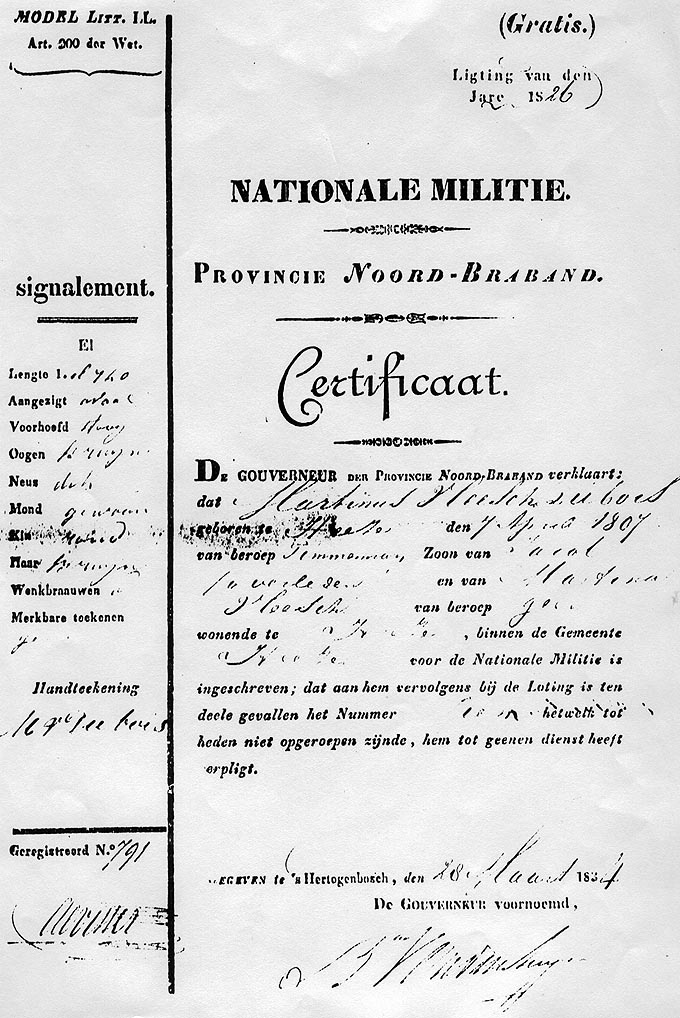 MODEL LITT. LL.
Art. 200 der Wet.
(Gratis.)
Ligting van den
Jare 1826
NATIONALE MILITIE.
PROVINCIE NOORD-BRABAND.
Certificaat.
signalement.
El
Lengte 1.
Aangezigt ovaal
Voorhoofd hoog
Oogen bruyn
Neus dik
Mond gewoon
Kin rond
Haar bruyn
Wenkbraauwen
Merkbare teekenen
Handteekening
Geregistreerd N.o 791
DE GOUVERNEUR DER PROVINCIE NOORD-BRABAND verklaart:
dat Martinus
geboren te den 7 April 1807
van beroep Timmerman Zoon van Jacob
en van Martina
van beroep
wonende te , binnen de Gemeente
voor de Nationale Militie is
ingeschreven; dat aan hem vervolgens bij de Loting is ten
deele gevallen het Nummer hetwelk tot
heden niet opgeroepen zijnde, hem tot geenen dienst heeft
verpligt.
GEGEVEN te 's Hertogenbosch, den 28 Maart 1834
De GOUVERNEUR voornoemd,